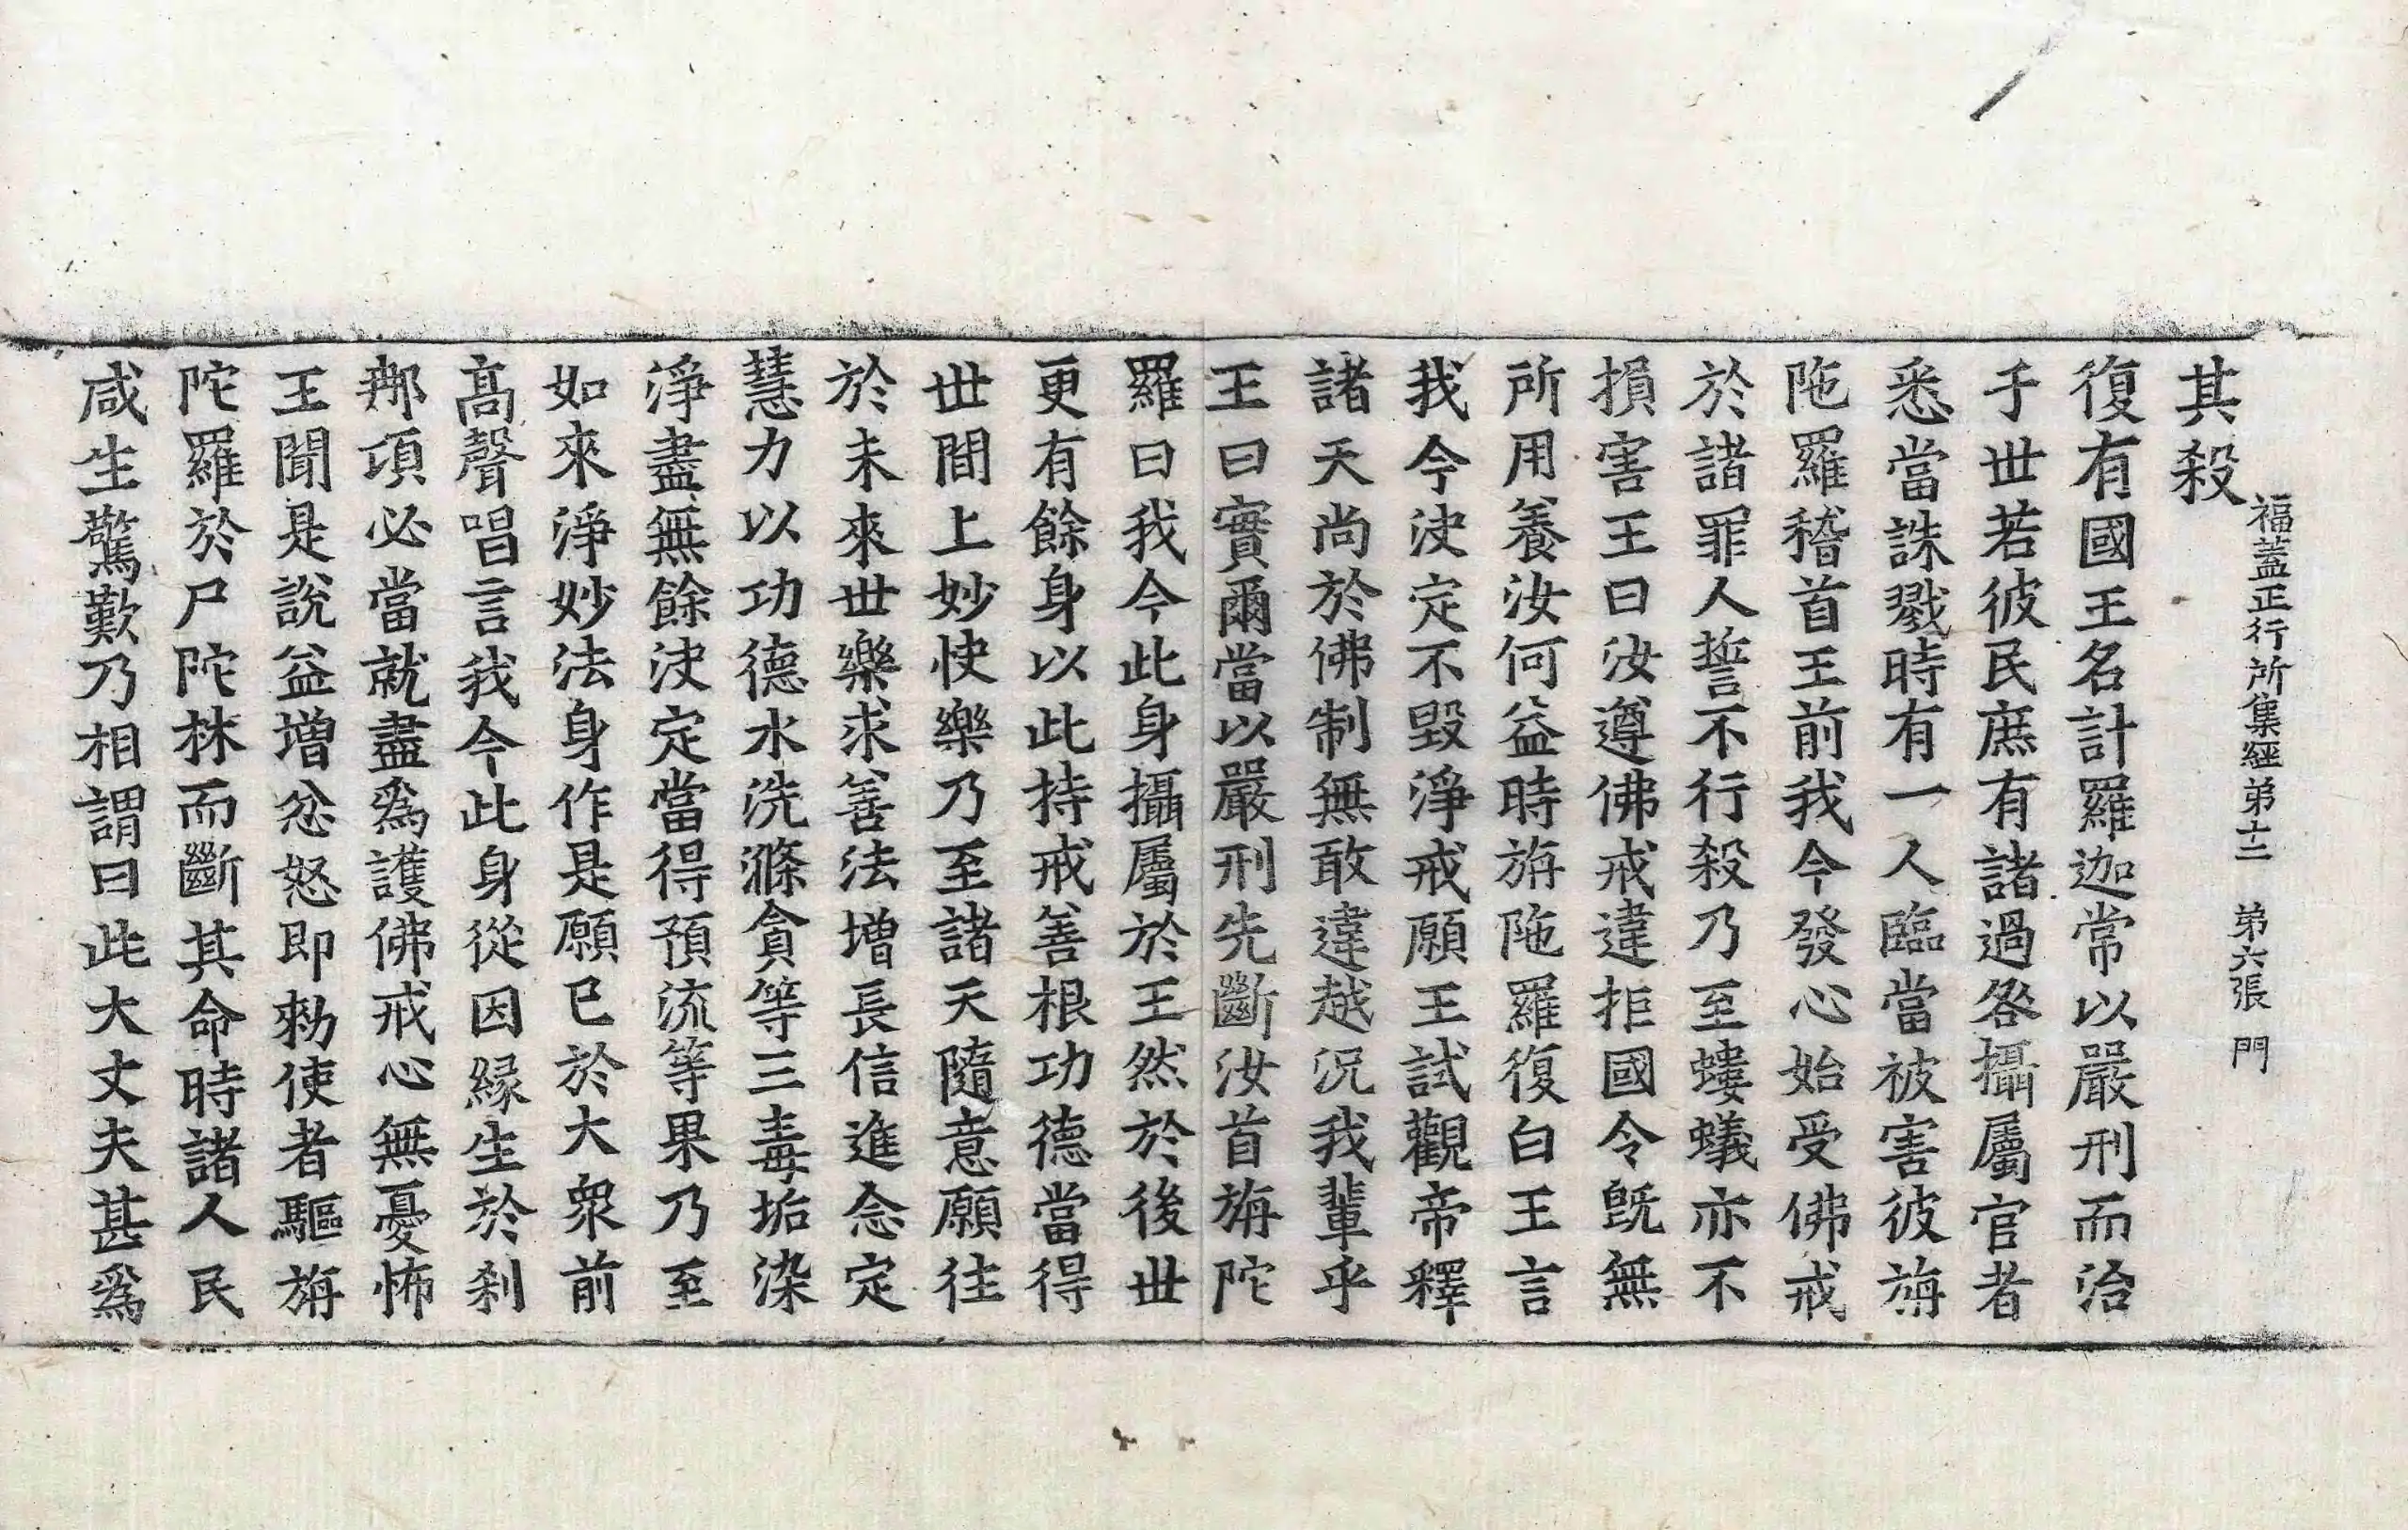 福蓋正行所集經第十二 第六張 門
其殺
復有國王名計羅迦常以嚴刑而治
于世若彼民庶有諸過咎攝屬官者
悉當誅戮時有一人臨當被害彼旃
陁羅稽首王前我今發心始受佛戒
於諸罪人誓不行殺乃至螻蟻亦不
損害王曰汝遵佛戒違拒國令旣無
所用養汝何益時旃陁羅復白王言
我今决定不毀淨戒願王試觀帝釋
諸天尚於佛制無敢違越況我輩乎
王曰實爾當以嚴刑先斷汝首旃陀
羅曰我今此身攝屬於王然於後世
更有餘身以此持戒善根功德當得
世間上妙快樂乃至諸天隨意願往
於未來世樂求善法增長信進念定
慧力以功德水洗滌貪等三毒垢染
淨盡無餘决定當得預流等果乃至
如來淨妙法身作是願已於大衆前
高聲唱言我今此身從因緣生於刹
那頃必當就盡爲護佛戒心無憂怖
王聞是說益增忿怒即勑使者驅旃
陀羅於尸陀林而斷其命時諸人民
咸生驚歎乃相謂曰此大丈夫甚爲